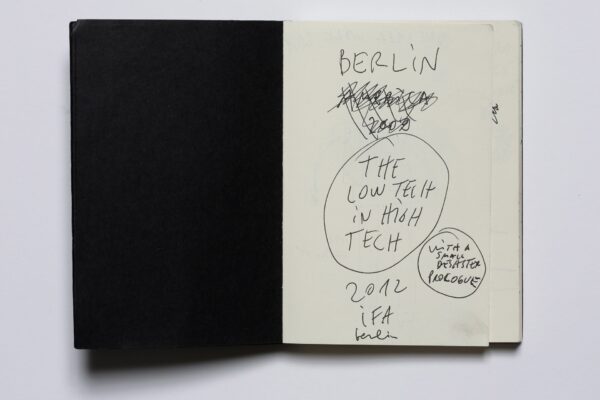 BERLiN
2000
THE
LOW TECH
iN HiGH
TECH
WiTH A
SMALL
DESASTER
PROLOGUE
2012
iFA
berlin